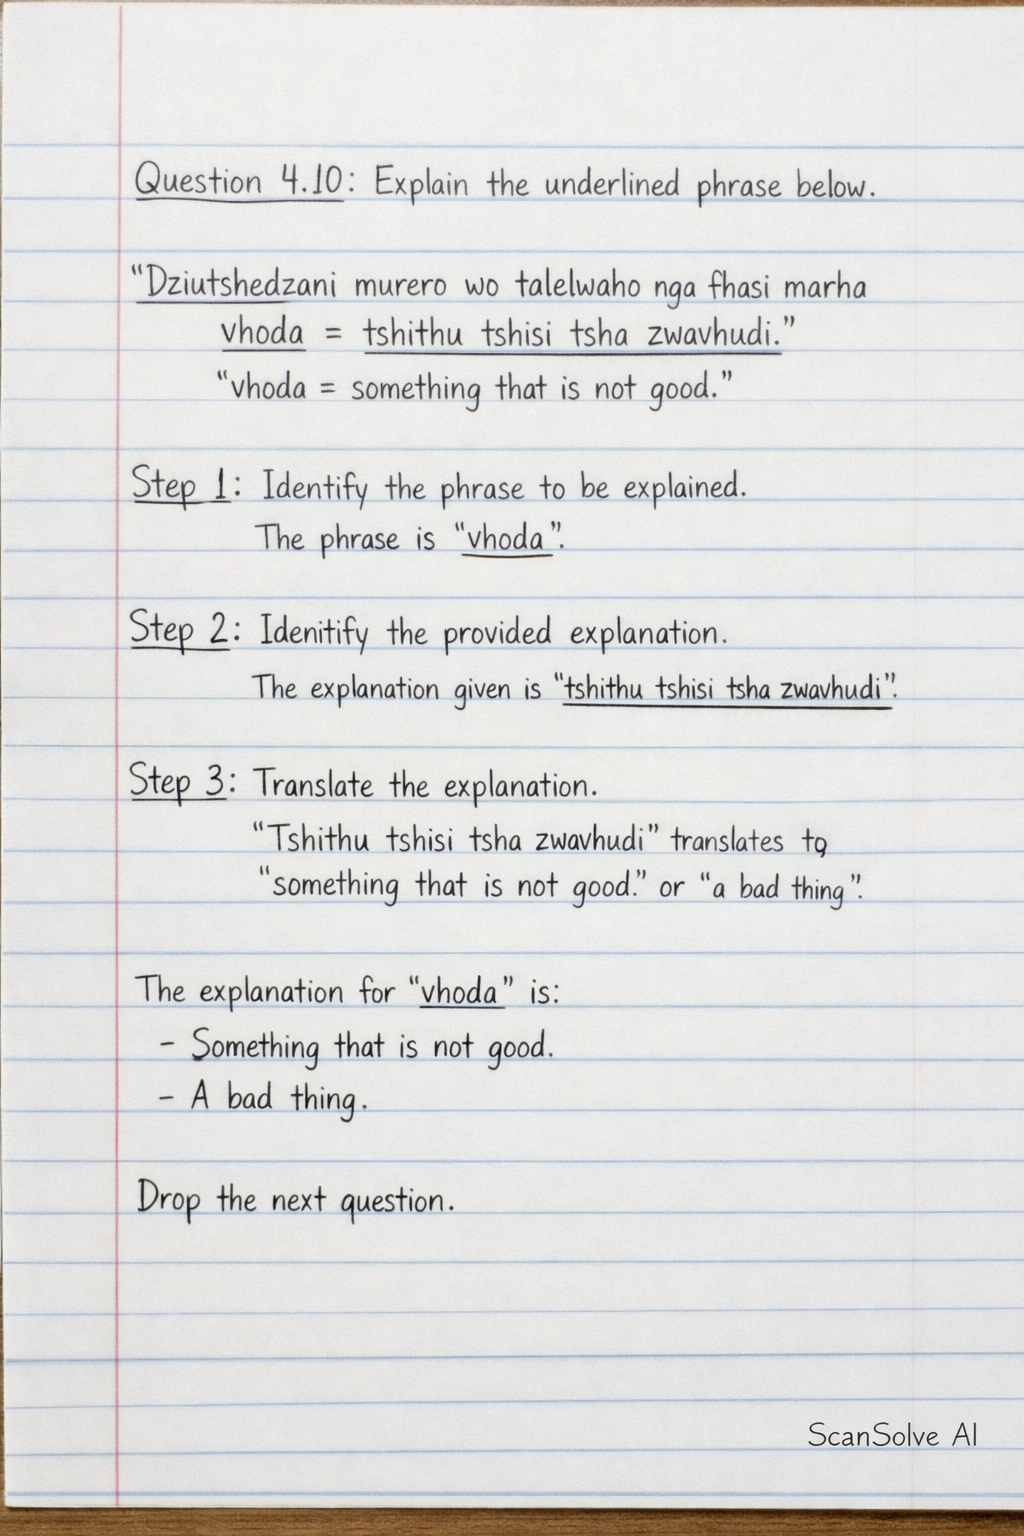 Question 4.10: Explain the underlined phrase below.
“Dziutshedzani murero wo talelwaho nga fhasi marha
vhoda = tshithu tshisi tsha zwavhudi.”
“vhoda = something that is not good.”
Step 1: Identify the phrase to be explained.
The phrase is “vhoda”.
Step 2: Idenitify the provided explanation.
The explanation given is “tshithu tshisi tsha zwavhudi”.
Step 3: Translate the explanation.
“Tshithu tshisi tsha zwavhudi” translates to
“something that is not good.” or “a bad thing”.
The explanation for “vhoda” is:
– Something that is not good.
– A bad thing.
Drop the next question.
ScanSolve AI